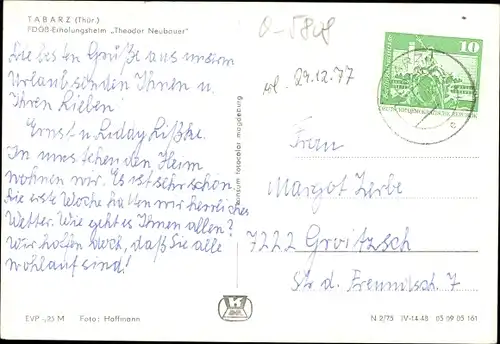 TABARZ (Thür.)
FDGB-Erholungsheim „Theodor Neubauer"
Die besten Grüße aus unserm
Urlaub senden Ihnen u.
Ihren Lieben
Ernst u.
In umstehenden Heim
wohnen wir. Es ist sehr schön.
Die erste Woche hatten wir herrliches
Wetter. Wie geht es Ihnen allen?
Wir hoffen doch, daß Sie alle
wohlauf sind!
EVP -,25 M Foto: Hoffmann
magdeburg
29.12.77
10
DEUTSCHE DEMOKRATISCHE REPUBLIK
Frau
Margot Zerbe
7222 Groitzsch
Str d. Freundsch. 7
N 2/75 IV-14-48 05 09 05 161